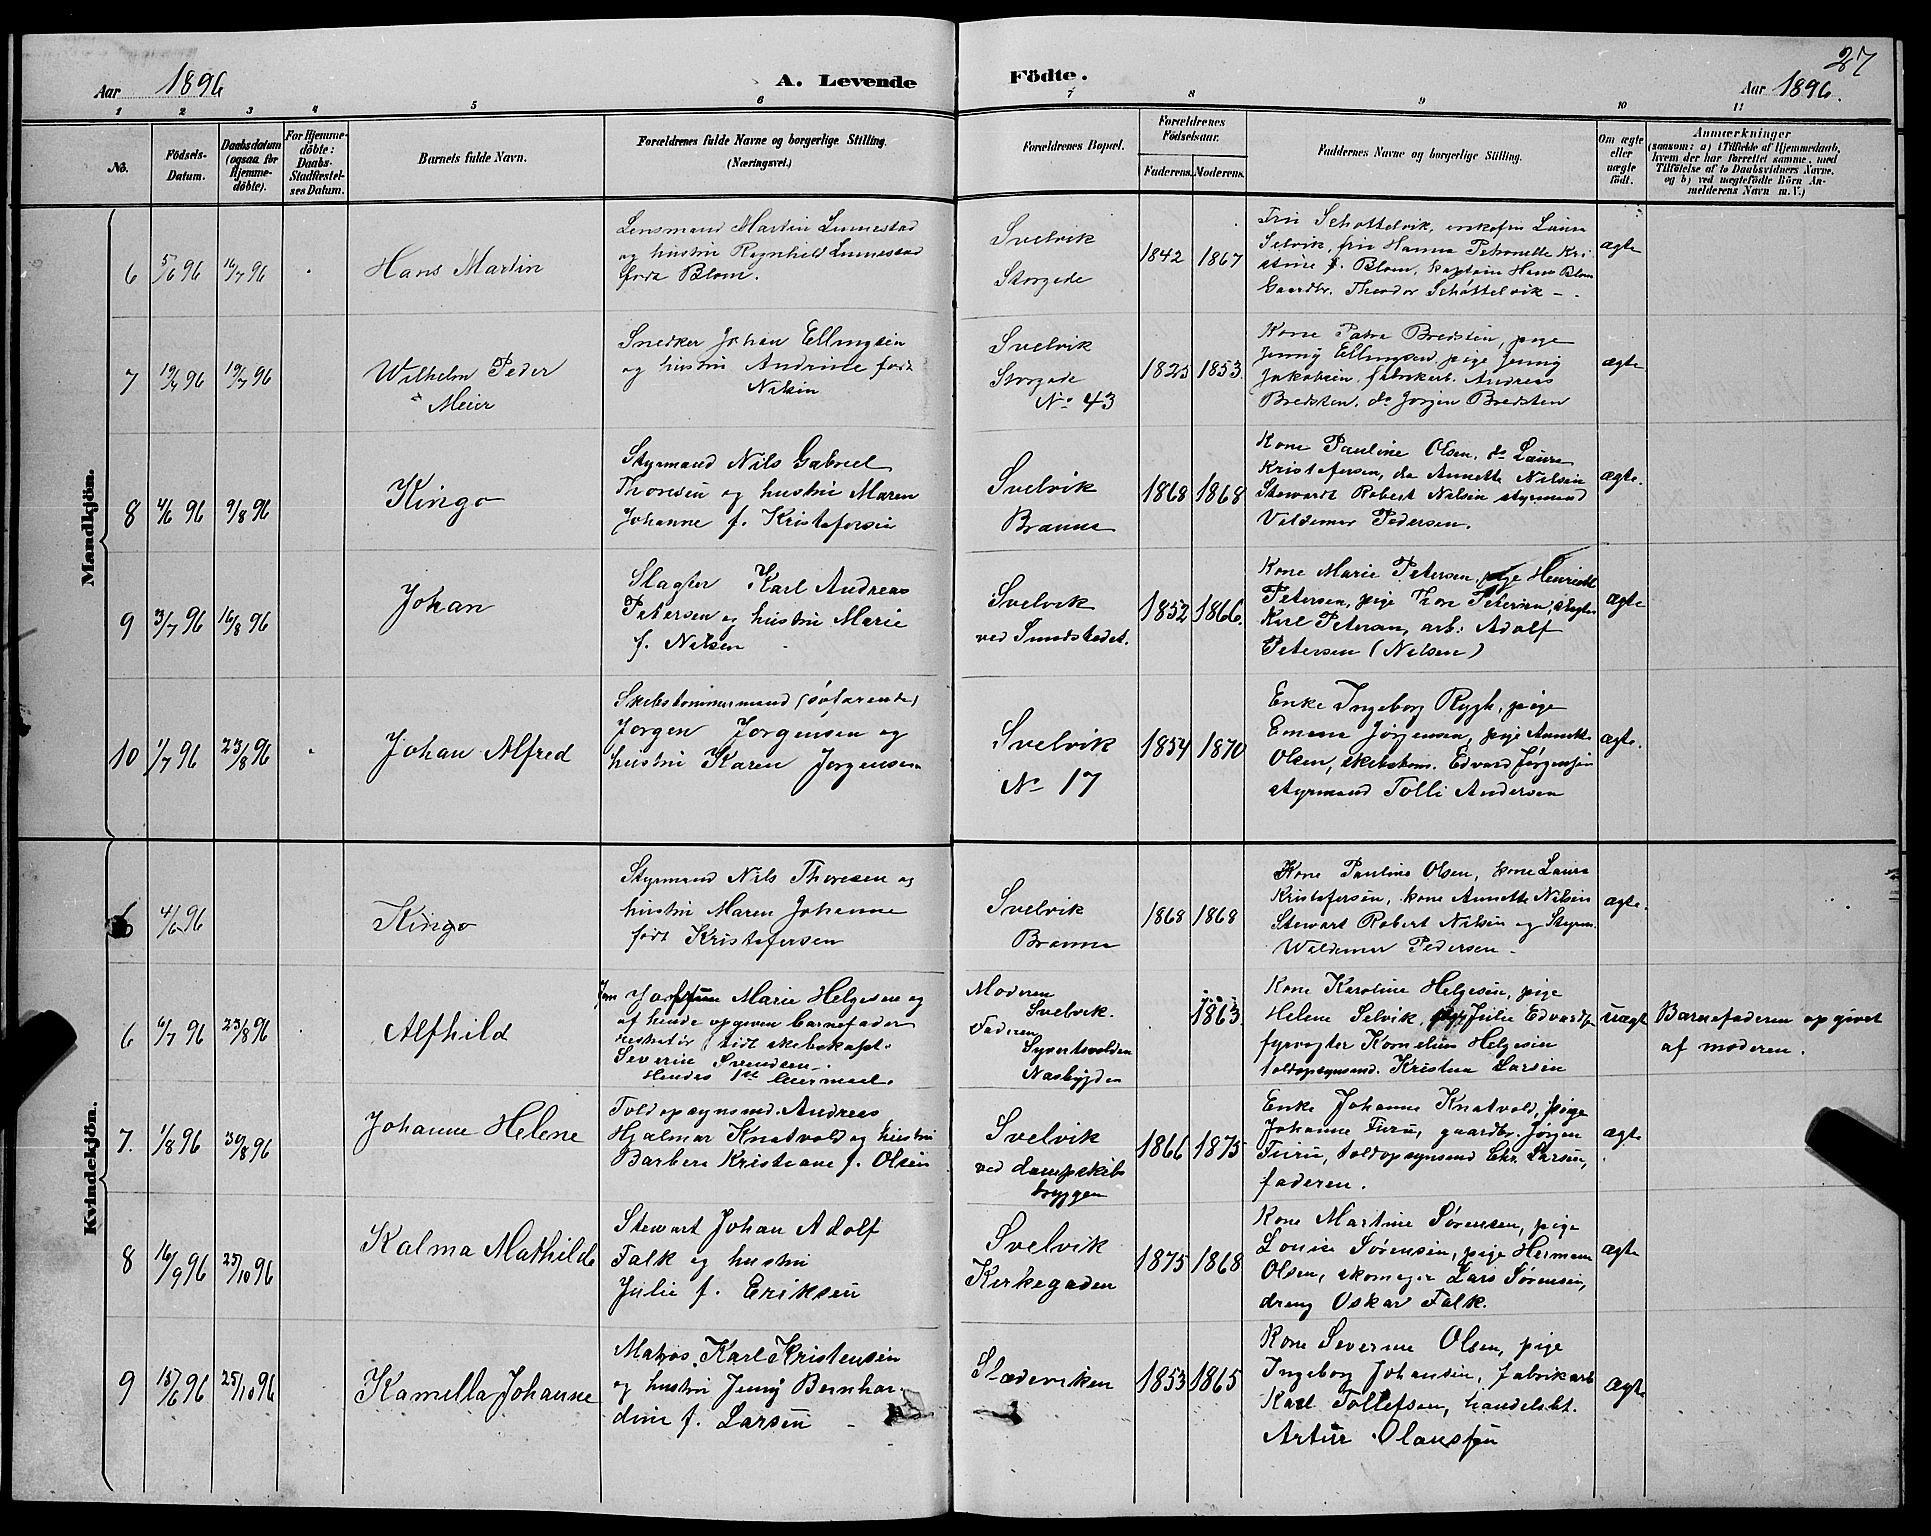 27
Aar 1896
A. Levende
Födte.
Aar 1896.
1 2 3 4 5 6 7 8 9 10 11
No.
Födsels-
Datum.
Daabsdatum
(ogsaa for
Hjemme-
döbte).
For Hjemme-
döbte:
Daabs-
Stadfæstel-
ses Datum.
Barnets fulde Navn.
Forældrenes fulde Navne og borgerlige Stilling.
(Næringsvei.)
Forældrenes Bopæl.
Forældrenes
Födselsaar.
Faderens. Moderens.
Faddernes Navne og borgerlige Stilling.
Om ægte
eller
uægte
födt.
Anmærkninger
(saasom: a) i Tilfælde af Hjemmedaab,
hvem der har forrettet samme, med
Tilföielse af to Daabsvidners Navne,
og b) ved uægtefödte Börn An-
melderens Navn m. V.)
Mandkjön.
6
5/6 96
16/7 96
Hans Martin
Lensmand Martin Linnestad
og hustru Ragnhild Linnestad
født Blom.
Svelvik
Storgade
1842
1867
Fru Schøttelvik, enkefru Laura
Selvik, fru Hanna Petronelle Kri-
stine f. Blom, kaptein Hans Blom
Gaardbr. Theodor Schøttelvik -
ægte
7
19/4 96
19/7 96
Wilhelm Peder
Meier
Snedker Johan Ellingsen
og hustru Andrine født
Nilsen
Svelvik
Storgade
No 43
1825
1853.
Kone Petra Bredsten, pige
Jenny Ellingsen, pige Jenny
Jakobsen, fabrikarb. Andreas
Bredsten, do Jørgen Bredsten
ægte
8
4/6 96
9/8 96
Kingo
Styrmand Nils Gabriel
Thoresen og hustru Maren
Johanne f. Kristofersen
Svelvik
Branna
1868
1868
Kone Pauline Olsen, do Laura
Kristofersen, do Annette Nilsen
Stewardt Robert Nilsen styrmand
Valdemar Pedersen.
ægte.
9
3/7 96
16/8 96
Johan
Slagter Karl Andreas
Petersen og hustru Marie
f. Nilsen
Svelvik
ved Sundstedet.
1852
1866.
Kone Marie Petersen, pige Henriette
Petersen, pige Thora Petersen, slagter
Karl Petersen, arb. Adolf
Petersen (Nilsen)
ægte
10
1/7 96
23/8 96
Johan Alfred
Skibstømmermand (søfarende)
Jørgen Jørgensen og
hustru Karen Jørgensen
Svelvik
No 17
1854
1870
Enke Ingeborg Rygh, pige
Emma Jørgensen, pige Annette
Olsen, skibstøm. Edvard Jørgensen
styrmand Tolli Andersen
ægte.
Kvindekjön.
6
4/6 96
Kingo
Styrmand Nils Thoresen og
hustru Maren Johanne
født Kristofersen
Svelvik
Branna
1868
1868
Kone Pauline Olsen, kone Laura
Kristofersen, kone Annette Nilsen
Stewart Robert Nilsen og Styrm.
Waldemar Pedersen -
ægte.
6
6/7 96
23/8 96
Alfhild
Josefine Marie Helgesen og
af hende opgiven barnefader
tidl. skibskapt.
Severin Svendsen.
Hendes 1st leiermaal.
Moderen
Svelvik.
Faderen
Syvertsvolden
Nasbygden
1863.
Kone Karoline Helgesen, pige
Helene Selvik, Julie Edvards
fyrvogter Kornelius Helgesen
toldopsynsmd. Kristen Larsen
uægt
Barnefaderen opgivet
af moderen.
7.
1/8 96
30/8 96
Johanne Helene
Toldopsynsmd. Andreas
Hjalmar Knatvold og hustru
Barbera Kristiane f. Olsen
Svelvik
ved dampskibs
bryggen
1866
1875
Enke Johanne Knatvold, pige
Johanne Furu, gaardbr. Jørgen
Furu, toldopsynsmd Chr. Larsen,
faderen.
ægte
8
16/9 96
25/10 96
Kalma Mathilde
Stewart Johan Adolf
Falk og hustru
Julie f. Eriksen
Svelvik
Kirkegaden
1875
1868
Kone Martine Sørensen, pige
Louise Sørensen, pige Hermana
Olsen, skomager Lars Sørensen,
dreng Oskar Falk.
ægte
9
15/6 96
25/10 96
Kamilla Johanne
Matros Karl Kristensen
og hustru Jenny Bernhar-
dine f. Larsen
Stædeviken
1853
1865
Kone Severine Olsen, pige
Ingeborg Johansen, fabrikarb
Karl Tollefsen, handelsbt.
Artur Olausfen
ægte